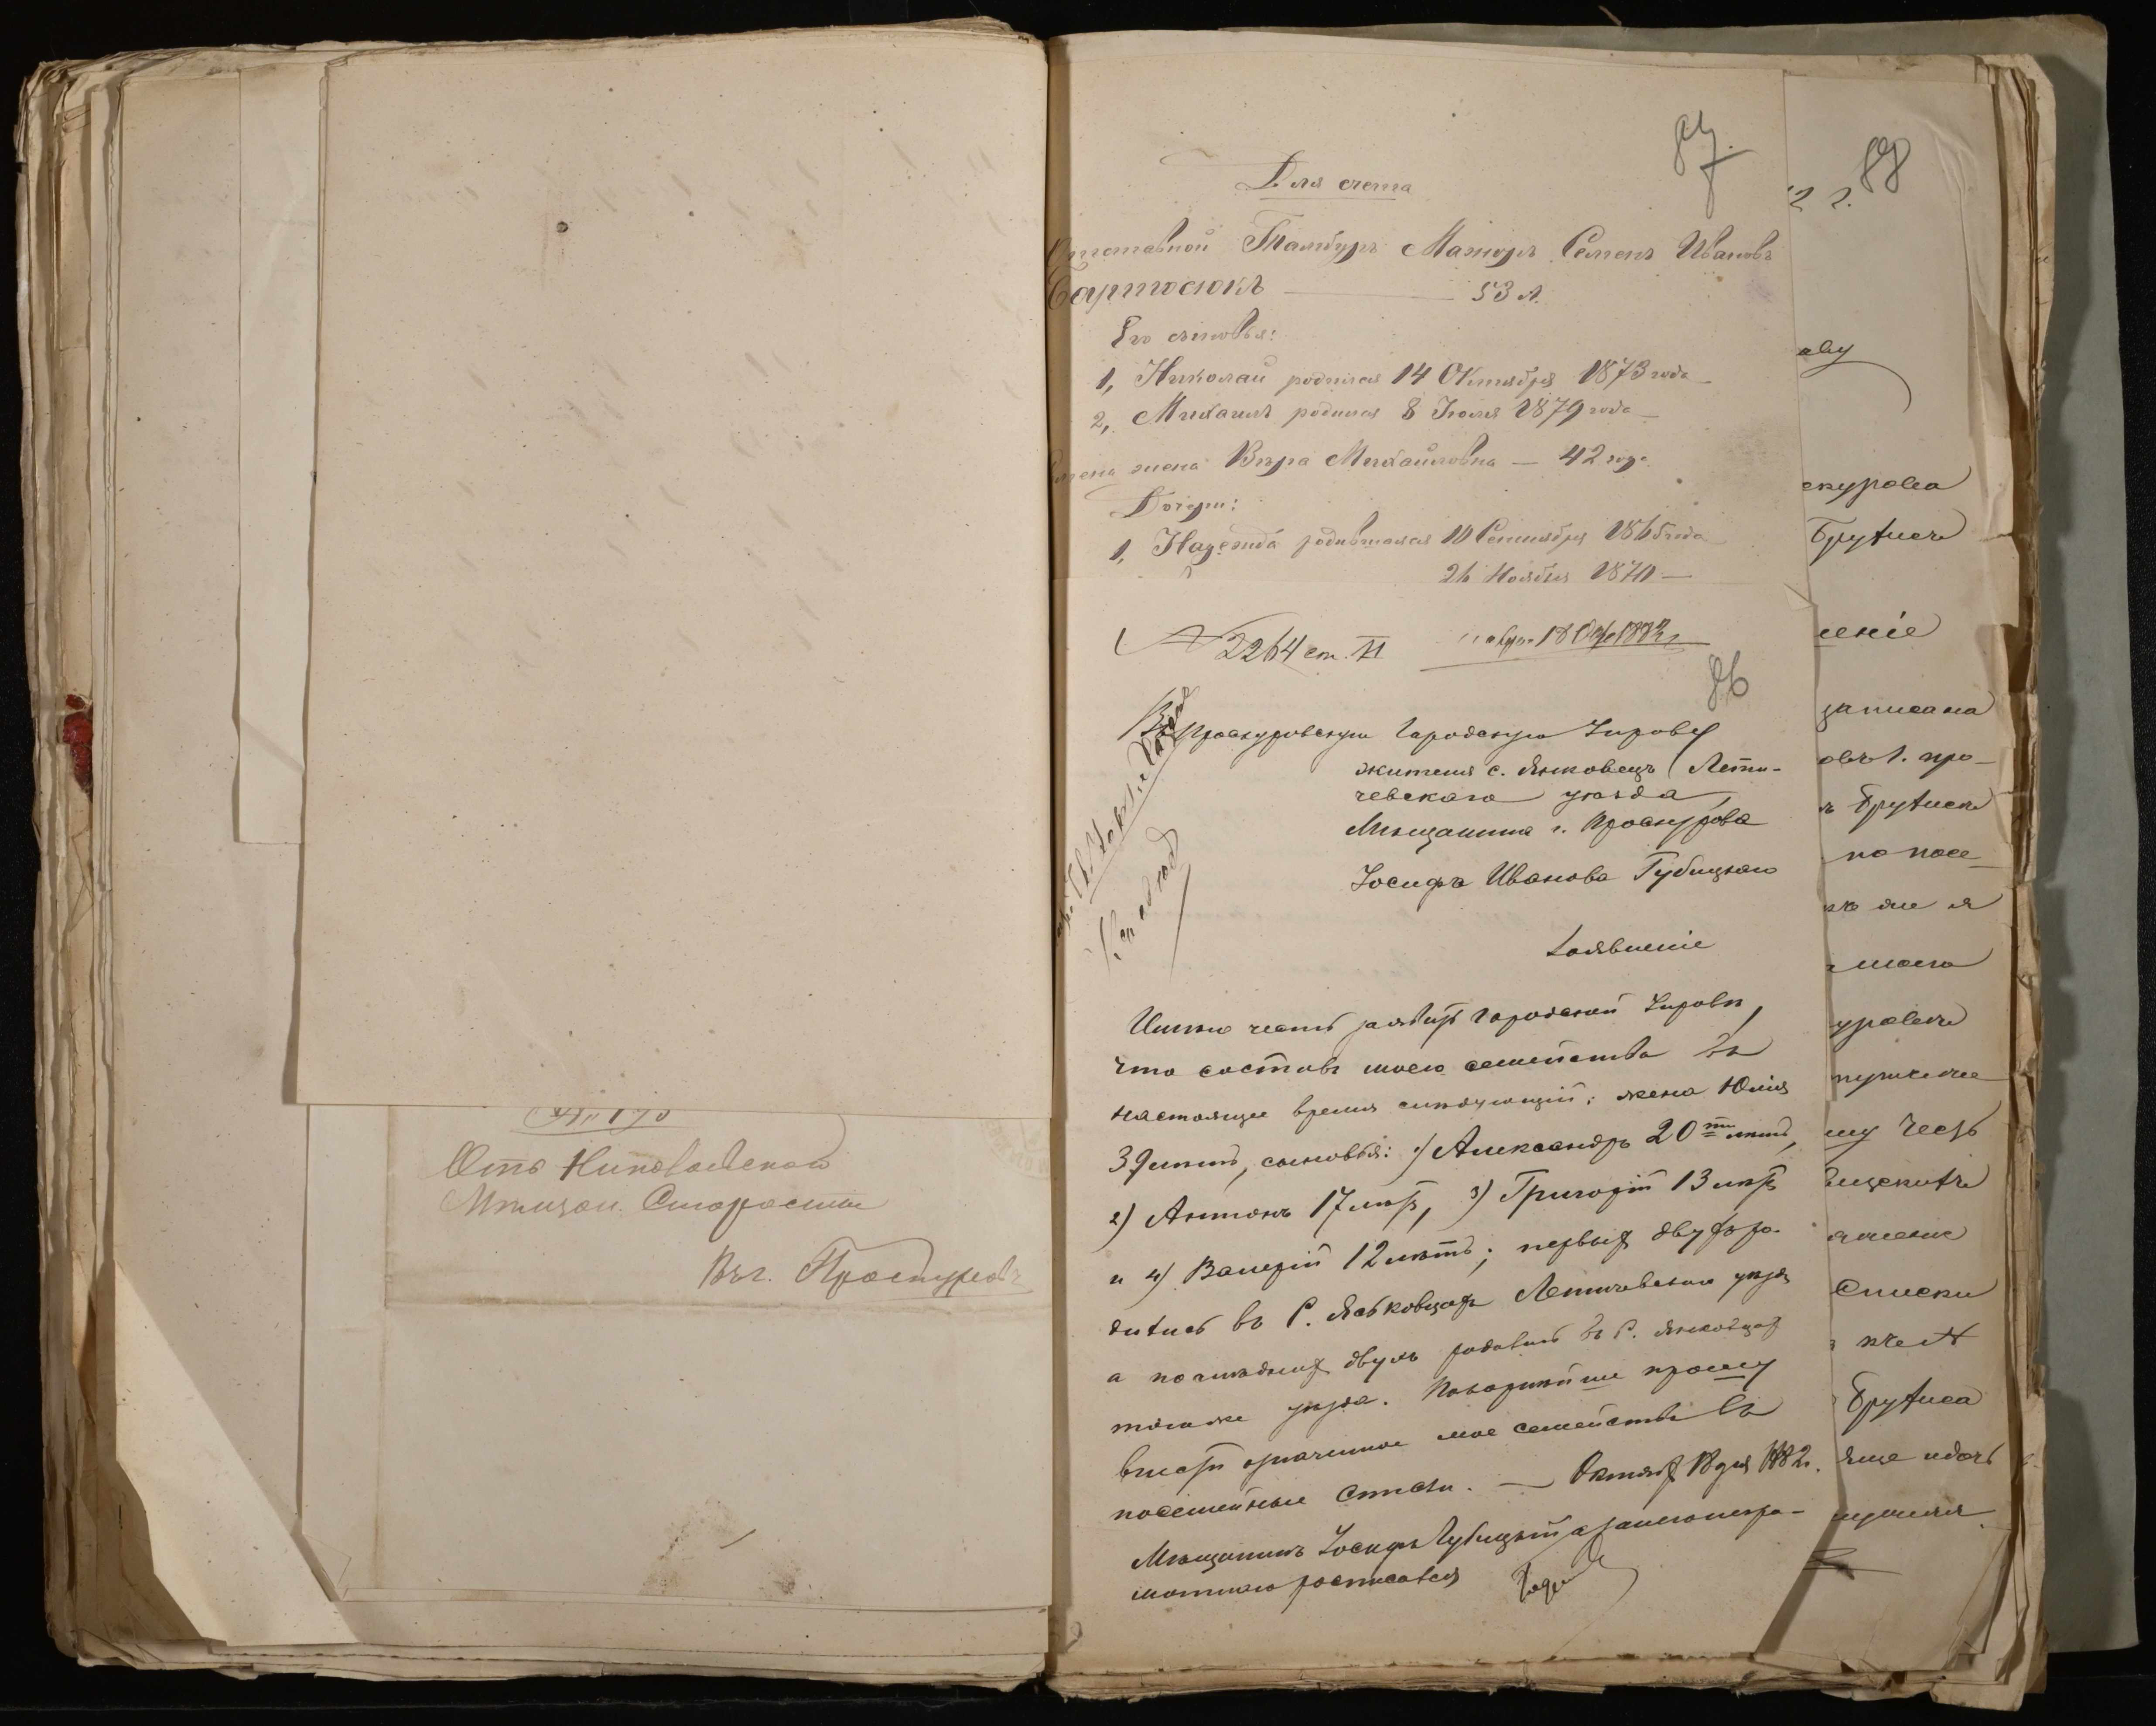 Отъ Николаевской
Мѣщан. Старосты
Въ г. Проскуровъ
87.
Для счета
Отставной Тамбуръ Мажоръ Семенъ Ивановъ
Бартосюкъ — 53 л.
Его сыновья:
1, Николай родился 14 Октября 1873 года
2, Михаилъ родился 8 Іюля 1879 года
жена Вѣра Михайловна — 42 года
Дочери:
1, Надежда родившаяся 10 Сентября 1865 года
26 Ноября 1870 —
№ 2264 ст. II 18 Окт 1882
86
Въ Проскуровскую Городскую Управу
жителя с. Яськовецъ Лети-
чевскаго уѣзда,
Мѣщанина г. Проскурова
Іосифа Иванова Губицкаго
Заявленіе
Имѣю честь заявить Городской Управѣ,
что составъ моего семейства въ
настоящее время слѣдующій: жена Юлія
39 лѣтъ, сыновья: 1) Александръ 20ти лѣтъ,
2) Антонъ 17 лѣтъ, 3) Григорій 13 лѣтъ
и 4) Валерій 12 лѣтъ; первыя двухъ ро-
дились въ С. Яськовцахъ Летичевскаго уѣзда
а послѣдних двухъ родились въ С. Яськовцах
того же уѣзда. Покорнѣйше прошу
внести означенное мое семейство въ
посемейные списки. — Октября 18 дня 1882 г.
Мѣщанинъ Іосифъ Губицкій а за него негра-
мотнаго росписался
88
2 г.
аву
скурова
Брухисъ
леніе
записана
овъ 1. про-
ъ Брухисъ
по посе-
же я
моего
му честь
списки
Брухиса